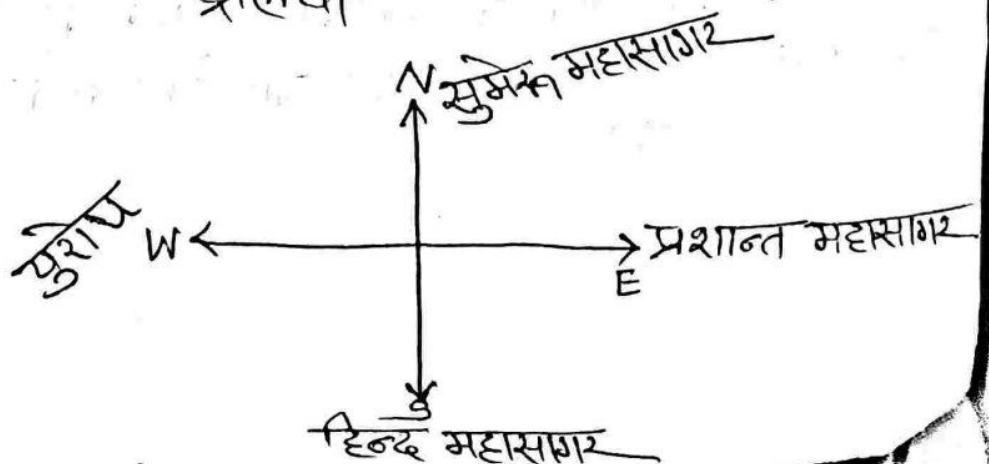 N सुमेरू महासागर
युरोप W E प्रशान्त महासागर
S
हिन्द महासागर